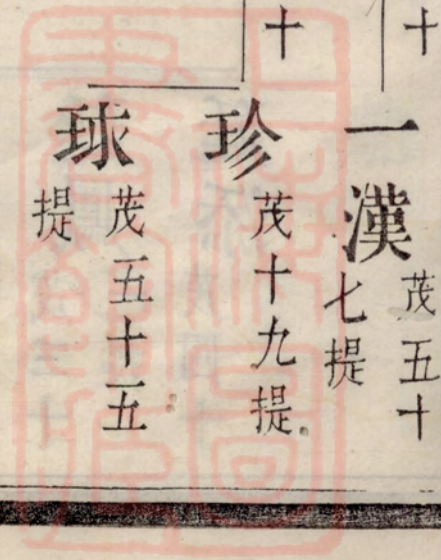 十
十
一漢 茂五十
七提
珍 茂十九提
球 茂五十五
提